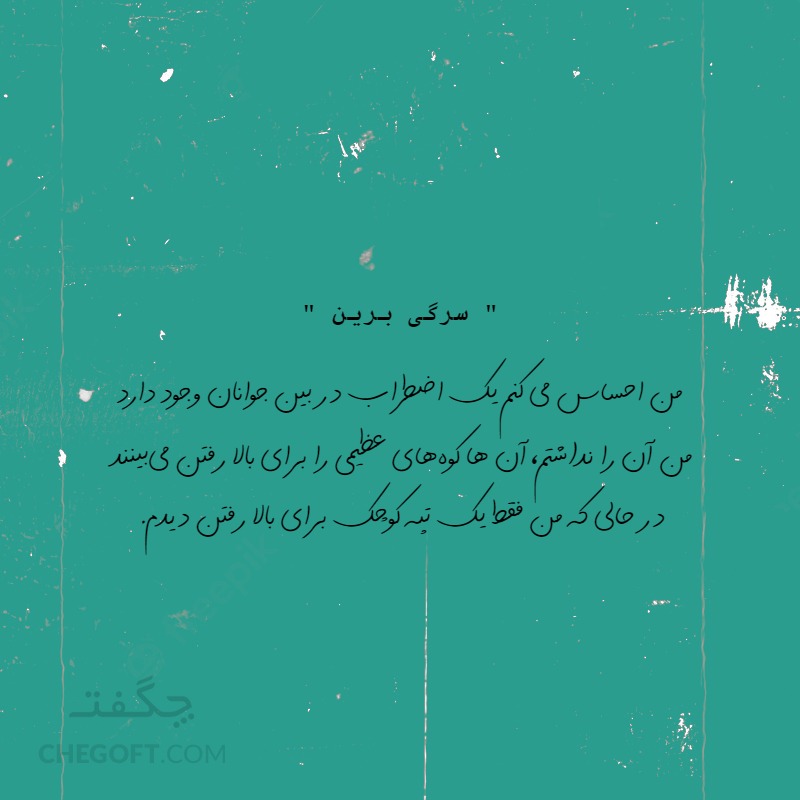 " سرگی برین "
من احساس می کنم یک اضطراب در بین جوانان وجود دارد
من آن را نداشتم، آن ها کوه‌های عظیمی را برای بالا رفتن می‌بینند
در حالی که من فقط یک تپه کوچک برای بالا رفتن دیدم.
چگفت
CHEGOFT.COM